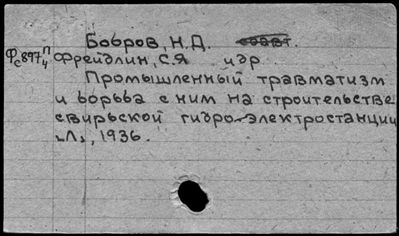 Бобров, Н.Д.
Фрейдлин, С.Я идр
Промышленный травматизм
и борьба с ним на строительстве
свирьской гидро-электростанции
"Л", 1936.